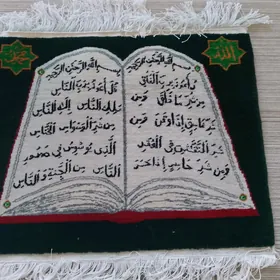 الله
محمد
بسم الله الرحمن الرحيم
قل اعوذ برب الفلق
من شر ما خلق ومن
شر غاسق اذا وقب ومن
شر النفثت فى العقد
ومن شر حاسد اذا حسد
بسم الله الرحمن الرحيم
قل اعوذ برب الناس
ملك الناس اله الناس
من شر الوسواس الخناس
الذى يوسوس فى صدور
الناس من الجنة والناس